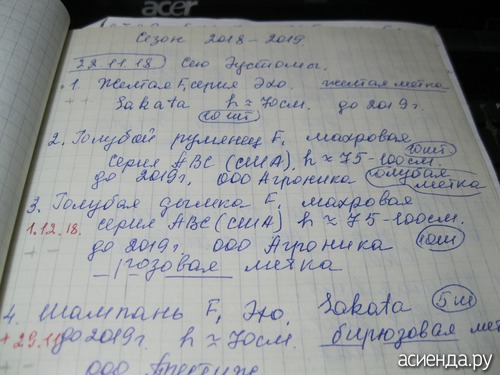 acer
Сезон 2018-2019.
22.11.18 Сею Эустомы.
1. Желтая F₁ серия Эхо. желтая метка
Sakata h ≈ 70см. до 2019г.
10 шт
2. Голубой румянец F₁ махровая
серия ABC (США), h ≈ 75-100см. 10шт
до 2019г. ООО Агроника голубая метка
3. Голубая дымка F₁ махровая
1.12.18. серия ABC (США) h ≈ 75-100см.
до 2019г. ООО Агроника 10шт
розовая метка
4. Шампань F₁ Эхо. Sakata 5ш
+29.11 до 2019г. h ≈ 70см. бирюзовая мет
ООО
асиенда.ру